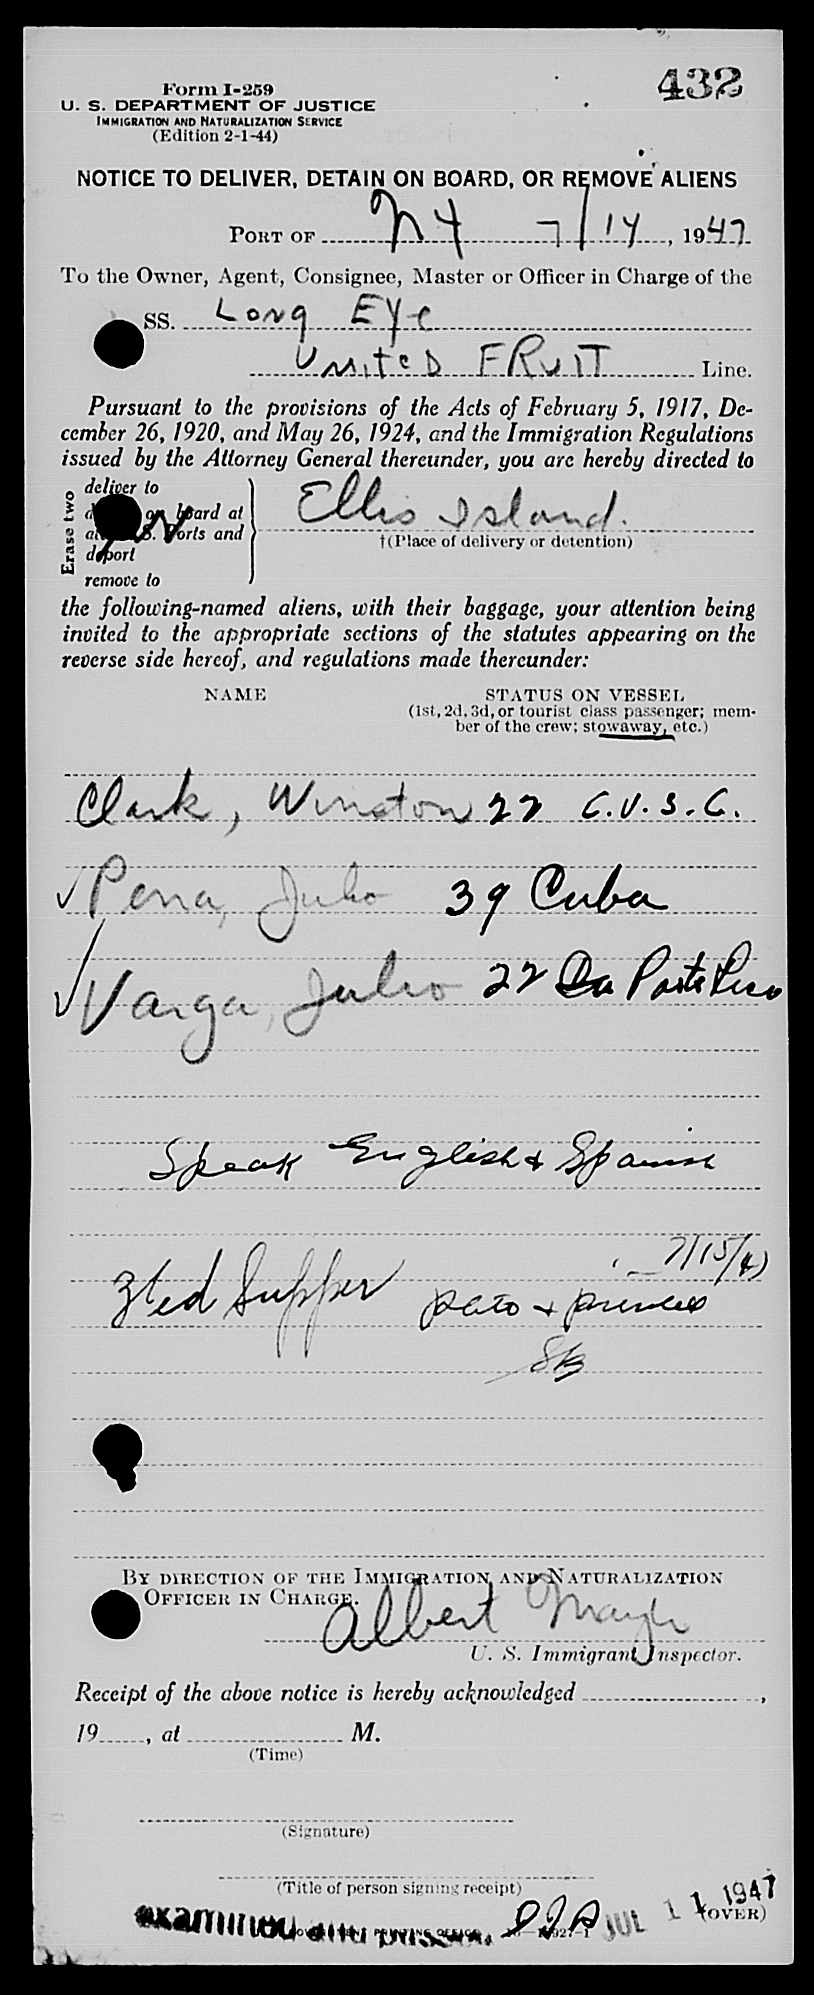 432
Form I-259
U. S. DEPARTMENT OF JUSTICE
IMMIGRATION AND NATURALIZATION SERVICE
(Edition 2-1-44)
NOTICE TO DELIVER, DETAIN ON BOARD, OR REMOVE ALIENS
PORT OF NY 7/14, 1947
To the Owner, Agent, Consignee, Master or Officer in Charge of the
SS. Long Eye
UNITED FRUIT Line.
Pursuant to the provisions of the Acts of February 5, 1917, De-
cember 26, 1920, and May 26, 1924, and the Immigration Regulations
issued by the Attorney General thereunder, you are hereby directed to
Erase two
deliver to
on board at
Ports and
deport
remove to
Ellis Island.
†(Place of delivery or detention)
the following-named aliens, with their baggage, your attention being
invited to the appropriate sections of the statutes appearing on the
reverse side hereof, and regulations made thereunder:
NAME STATUS ON VESSEL
(1st, 2d, 3d, or tourist class passenger; mem-
ber of the crew; stowaway, etc.)
Clark, Winston 22 C.V.S.C.
✓ Pena, Julio 39 Cuba
✓ Varga, Julio 22 Da Porto Rico
Speak English & Spanish
7/15/47
Sted Supper
By DIRECTION OF THE IMMIGRATION AND NATURALIZATION
OFFICER IN CHARGE.
Albert
U. S. Immigrant Inspector.
Receipt of the above notice is hereby acknowledged ,
19 , at M.
(Time)
(Signature)
(Title of person signing receipt)
examined and passed. JUL 11 1947
(OVER)